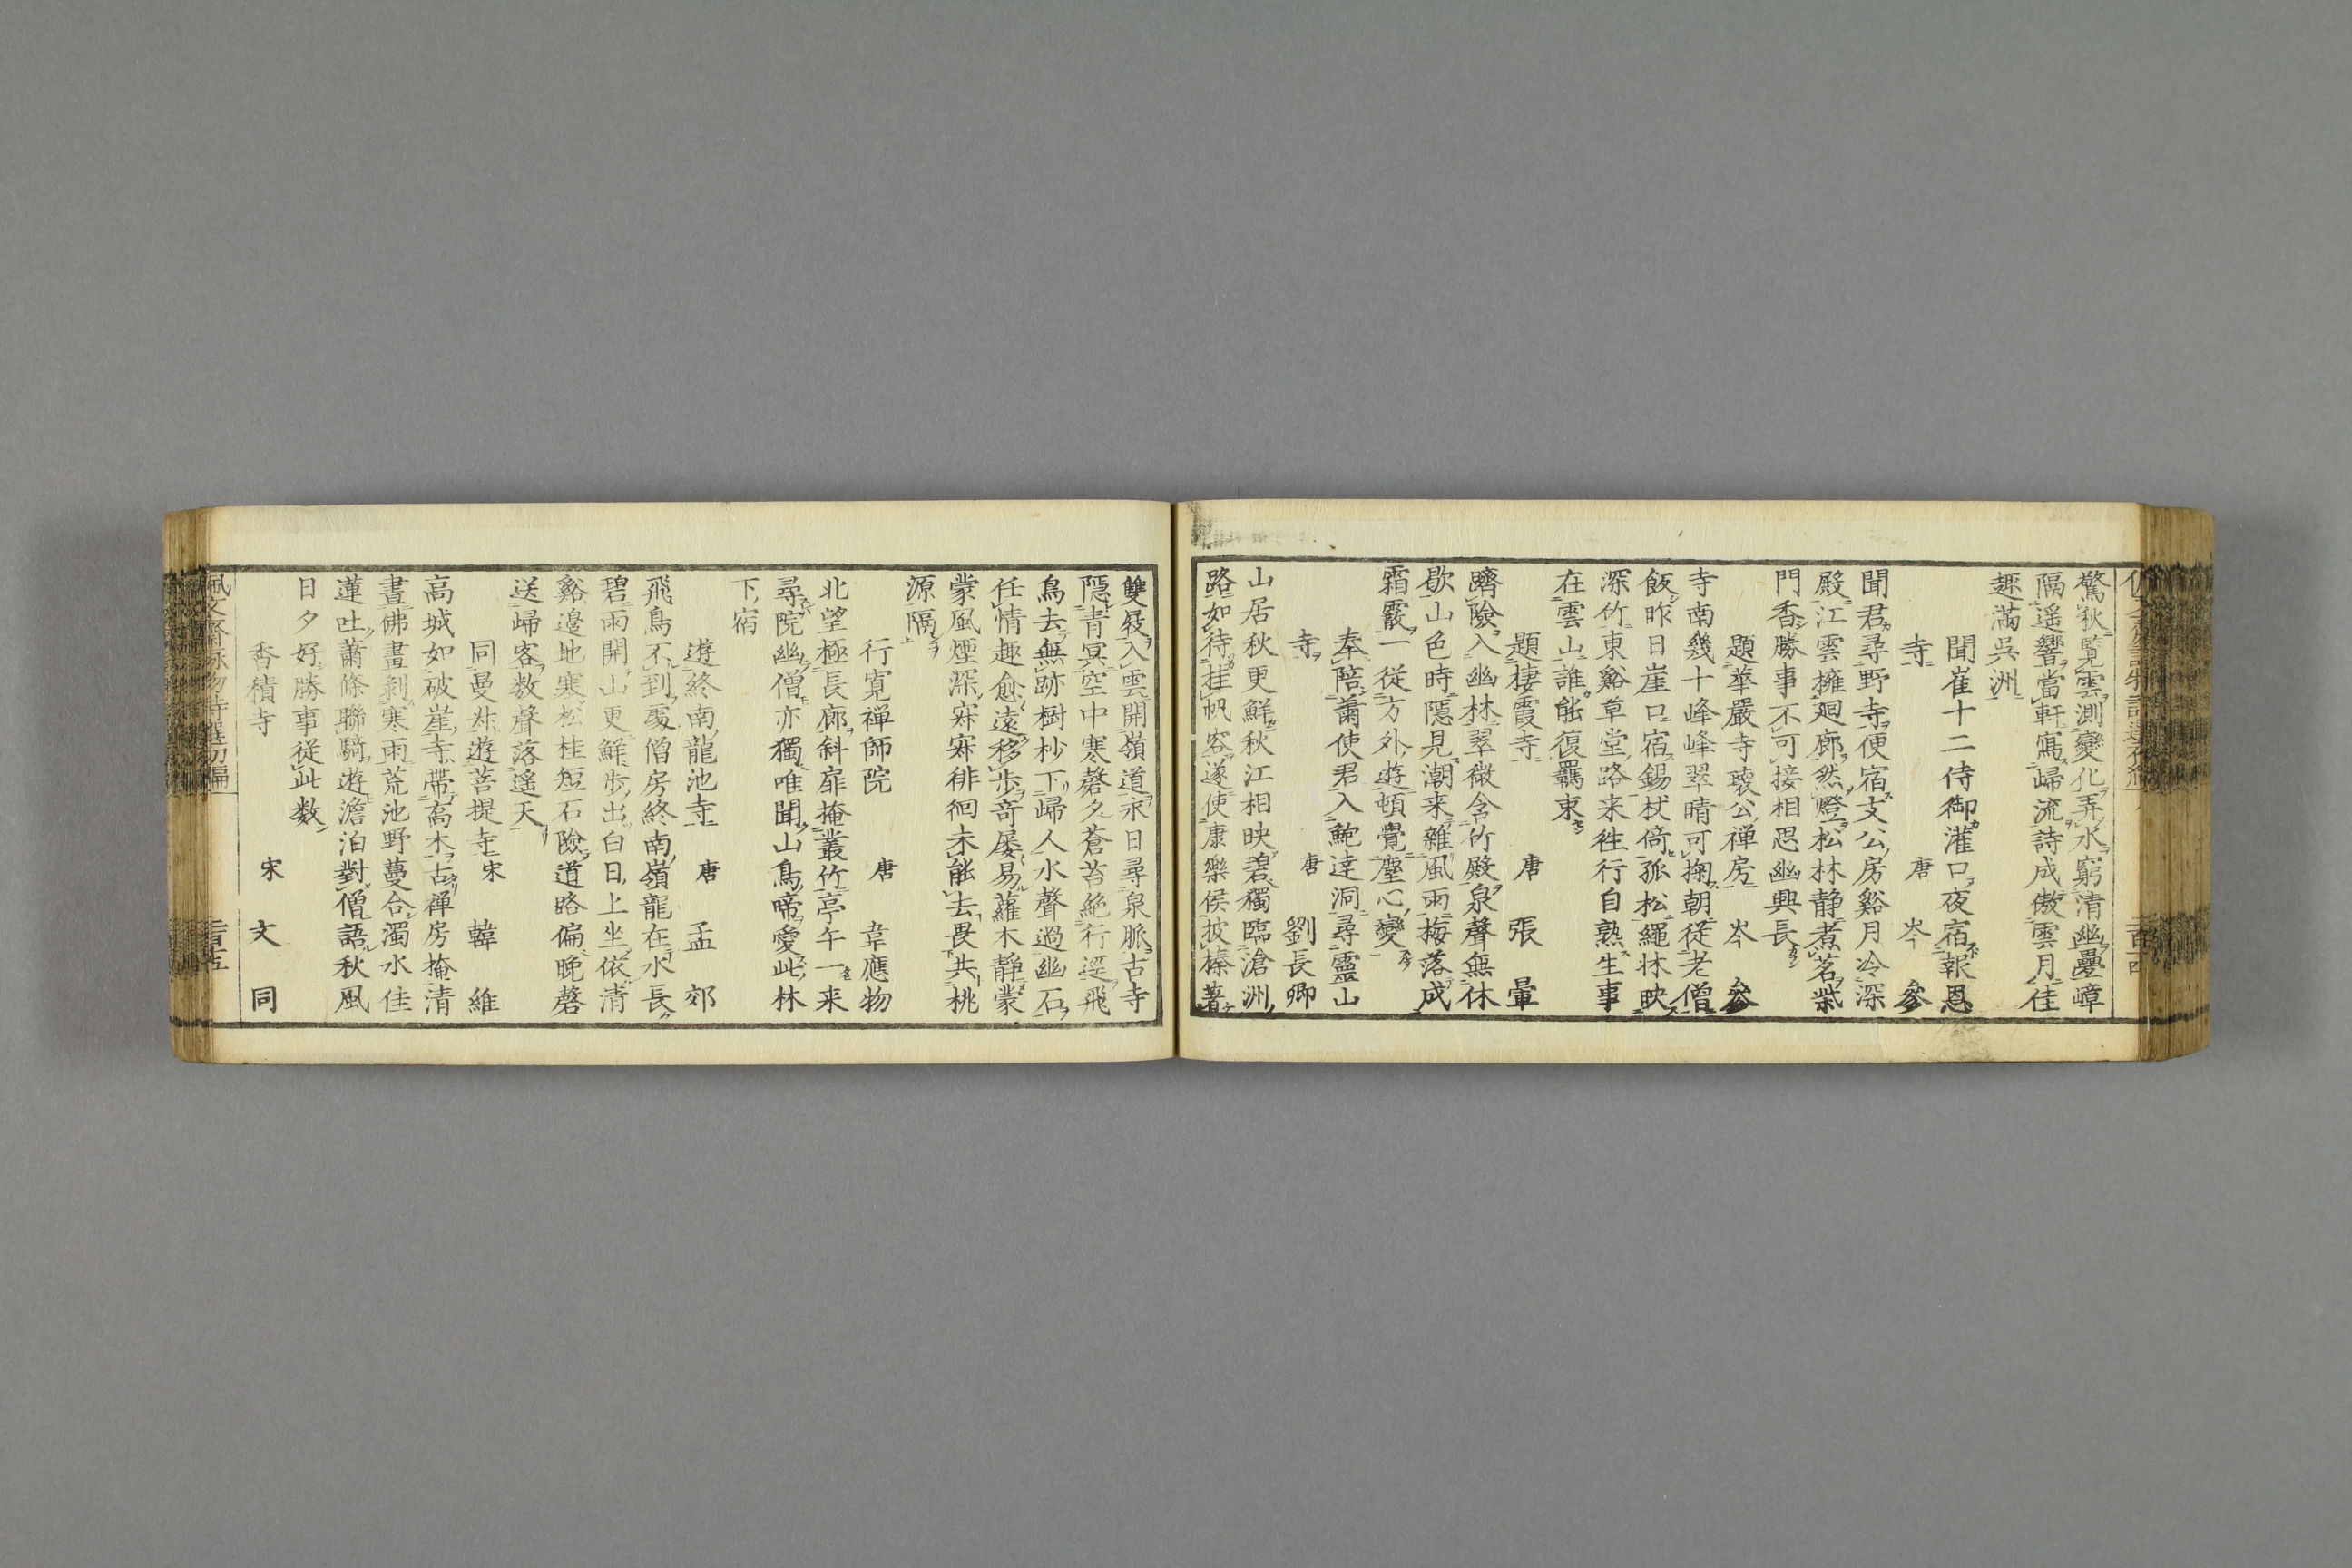 驚秋覽雲測變化弄水窮清幽疊嶂
隔遥響當軒寫歸流詩成傲雲月佳
趣滿吳洲
聞崔十二侍御灌口夜宿報恩
寺 唐 岑 參
聞君尋野寺便宿支公房谿月冷深
殿江雲擁廻廊然燈松林静煮茗柴
門香勝事不可接相思幽興長
題華嚴寺瓌公禅房 唐 岑 參
寺南幾十峰峰翠晴可掬朝從老僧
飯昨日崖口宿錫杖倚孤松繩牀映
深竹東谿草堂路来往行自熟生事
在雲山誰能復羈束
題棲霞寺 唐 張 暈
躋險入幽林翠微含竹殿泉聲無休
歇山色時隱見潮来雜風雨梅落成
霜霰一從方外遊頓覺塵心變
奉陪蕭使君入鮑達洞尋靈山
寺 唐 劉長卿
山居秋更鮮秋江相映碧獨臨滄洲
路如待挂帆客遂使康樂侯披榛著
雙屐入雲開嶺道永日尋泉脈古寺
隱青冥空中寒磬夕蒼苔絶行逕飛
鳥去無跡樹杪下歸人水聲過幽石
任情趣愈遠移歩竒屡易蘿木静蒙
蒙風煙深寂寂徘徊未能去畏共桃
源隔
行寛禅師院 唐 韋應物
北望極長廊斜扉掩叢竹亭午一来
尋院幽僧亦獨唯聞山鳥啼愛此林
下宿
遊終南龍池寺 唐 孟 郊
飛鳥不到處僧房終南嶺龍在水長
碧雨開山更鮮歩出白日上坐依清
谿邊地寒松桂短石險道路偏晩磬
送歸客数聲落遥天
同曼叔遊菩提寺 宋 韓 維
高城如破崖寺帯喬木古禅房掩清
晝佛畫剥寒雨荒池野蔓合濁水佳
蓮吐蕭條聯騎遊澹泊對僧語秋風
日夕好勝事從此数
香積寺 宋 文 同
佩文齋詠物詩選初編 二百十五